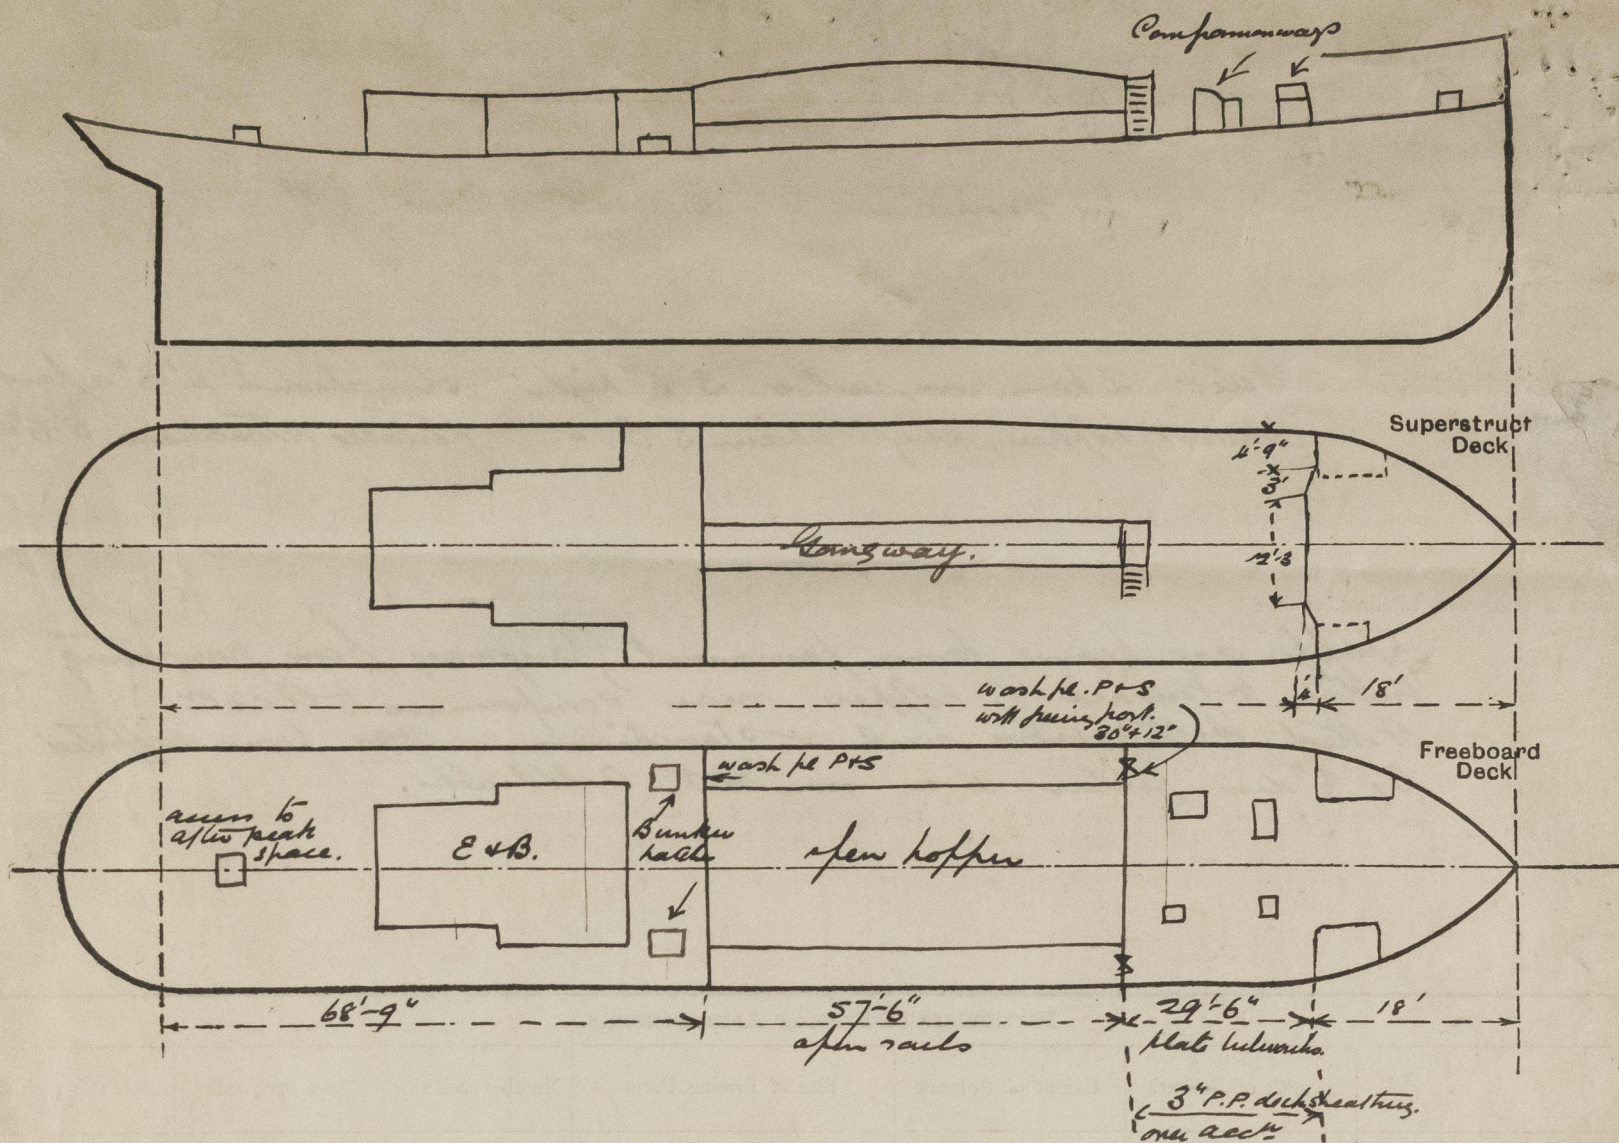 Companionways
Superstruct
Deck
4'-9"
3'
12'-3
Gangway.
4'
18'
wash pl. P+S
with freeing port.
30"+12"
Freeboard
Deck
wash pl P+S
access to
after peak
space.
E & B.
Bunker
hatch
open hopper
68'-9"
57'-6"
29'-6"
18'
open rails
plate bulwarks.
3" P.P. deck sheathing.
over accn